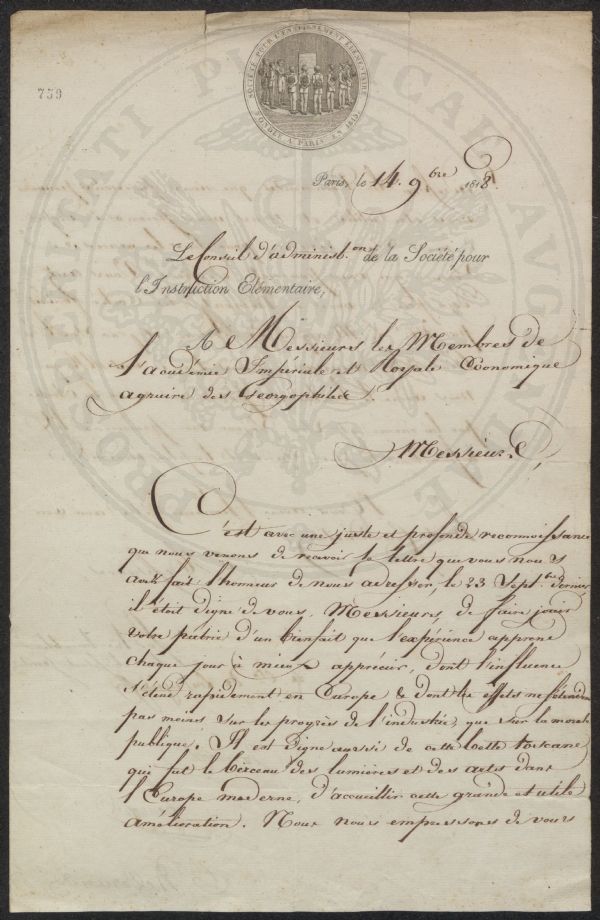 SOCIÉTÉ POUR L'ENSEIGNEMENT ÉLÉMENTAIRE
FONDÉE À PARIS EN 1815
739
PROSPERITATI PUBLICAE AUGENDAE
Paris, le 14. 9bre 1818.
Le Conseil d'administ.on de la Société pour
l'Instruction Elémentaire,
A Messieurs les Membres de
l'académie Impériale et Royale Economique
agraire des Georgophiles.
Messieurs,
C'est avec une juste et profonde reconnoissance
que nous venons de recevoir la lettre que vous nous
avez fait l'honneur de nous adresser, le 23 Sept.bre dernier,
il étoit digne de vous, Messieurs, de faire jouir
votre patrie d'un bienfait que l'expérience apprend
chaque jour à mieux apprécier, dont l'influence
s'étend rapidement en Europe & dont les effets ne s'étendent
pas moins sur les progrès de l'industrie, que sur la morale
publique. Il est digne aussi de cette belle toscane
qui fut le berceau des lumières et des arts dans
l'Europe moderne, d'accueillir cette grande et utile
amélioration. Nous nous empressons de vous